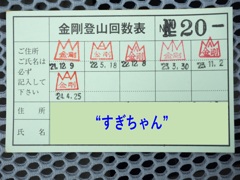 金剛登山回数表 20-
ご住所
ご氏名は
必ず
記入して
下さい
金剛 金剛 金剛 金剛 金剛
22.5.18 22.12.8 23.3.30 23.11.2
金剛
24.4.25
住所
氏名
“すぎちゃん”